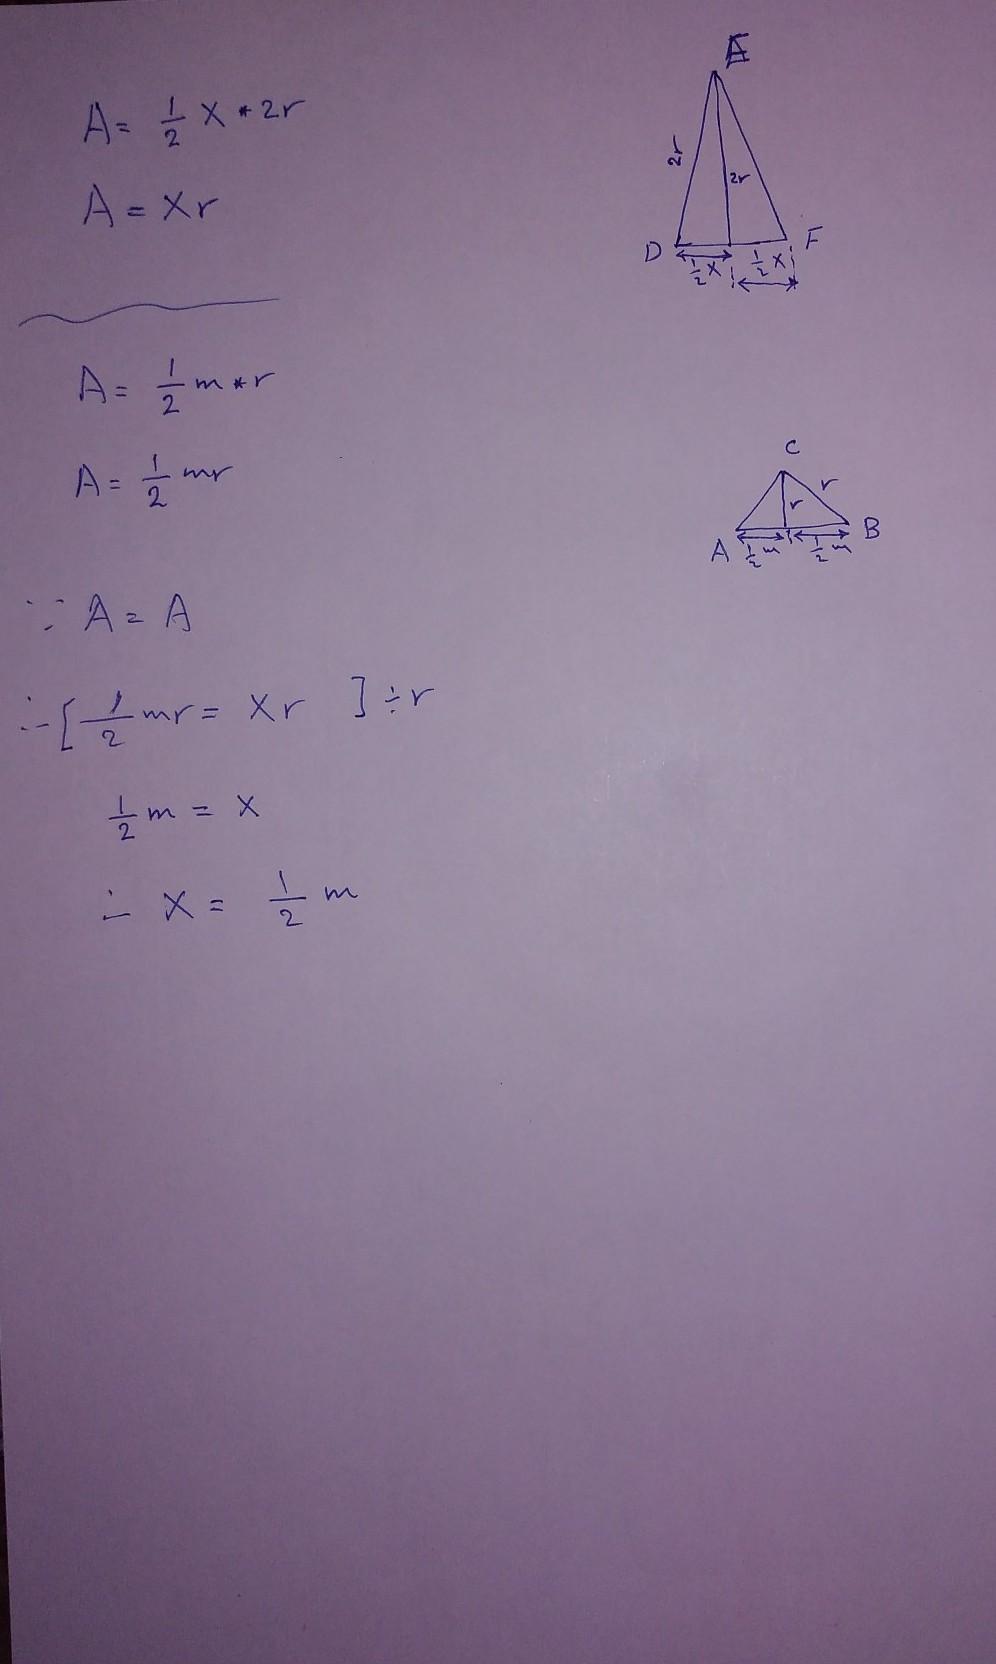 A = 1/2 x * 2r
A = xr
A = 1/2 m * r
A = 1/2 mr
∵ A = A
∴ [ 1/2 mr = xr ] ÷ r
1/2 m = x
∴ x = 1/2 m
E
2r
2r
D
F
1/2 x
1/2 x
C
r
r
A
B
1/2 m
1/2 m